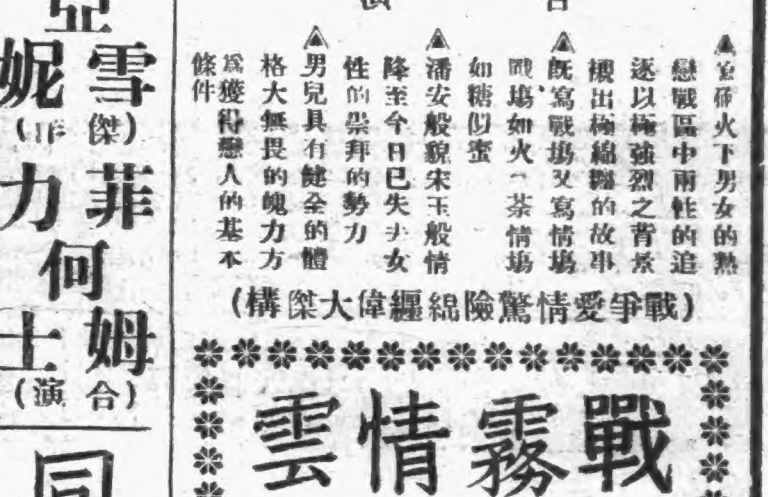 ▲砲火下男女的熱
戀戰區中兩性的追
逐以極強烈之背景
襯出極綿纏的故事
▲既寫戰塲又寫情塲
戰塲如火荼情塲
如糖似蜜
▲潘安般貌宋玉般情
降至今日已失去女
性的崇拜的勢力
▲男兒具有健全的體
格大無畏的魄力方
爲獲得戀人的基本
條件
(戰爭愛情驚險綿纏偉大傑構)
戰霧情雲
亞
雪妮
(傑)
菲力
何
姆士
(合演)
同